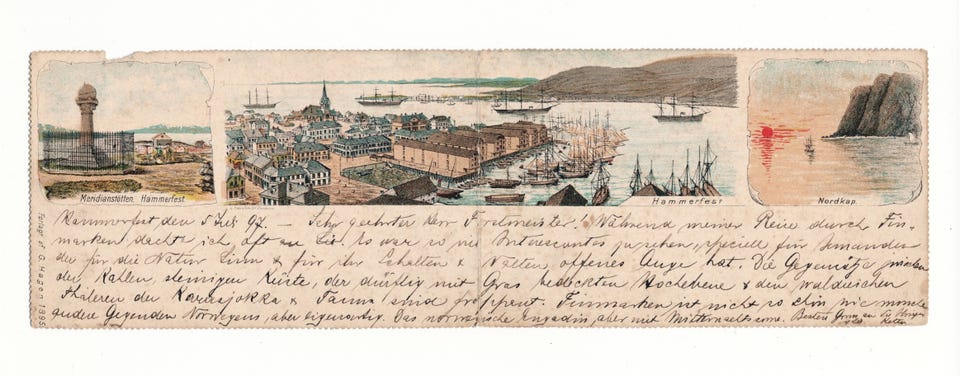 Meridianstötten. Hammerfest
Hammerfest
Nordkap.
Forlagt af G. Hagen 1895
Hammerfest den 5 Juli 97. — Sehr geehrter Herr Forstmeister! Während meiner Reise durch Fin-
marken dachte ich oft an Sie. Es war so viel Interessantes zu sehen, speciell für Jemanden
der für die Natur Sinn & für ihr Schalten & Walten offenes Auge hat. Die Gegensätze zwischen
der kahlen, steinigen Küste, der dürftig mit Gras bedeckten Hochebene & den waldreichen
Thälern der Karasjokka & Tanna sind frappant. Finmarken ist nicht so schön wie manche
andere Gegenden Norwegens, aber eigenartig. Das norwegische Engadin, aber mit Mitternachtssonne. Besten Gruss an